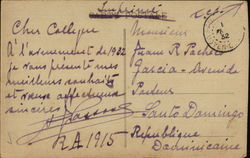 Imprimé
Cher Collègue
À l'avènement de 1922
je vous présente mes
meilleurs souhaits
et vœux affectueux
sincères
RA 1915
Monsieur
R Pacheco
Garcia - Avenida
Pasteur
Santo Domingo
République
Dominicaine